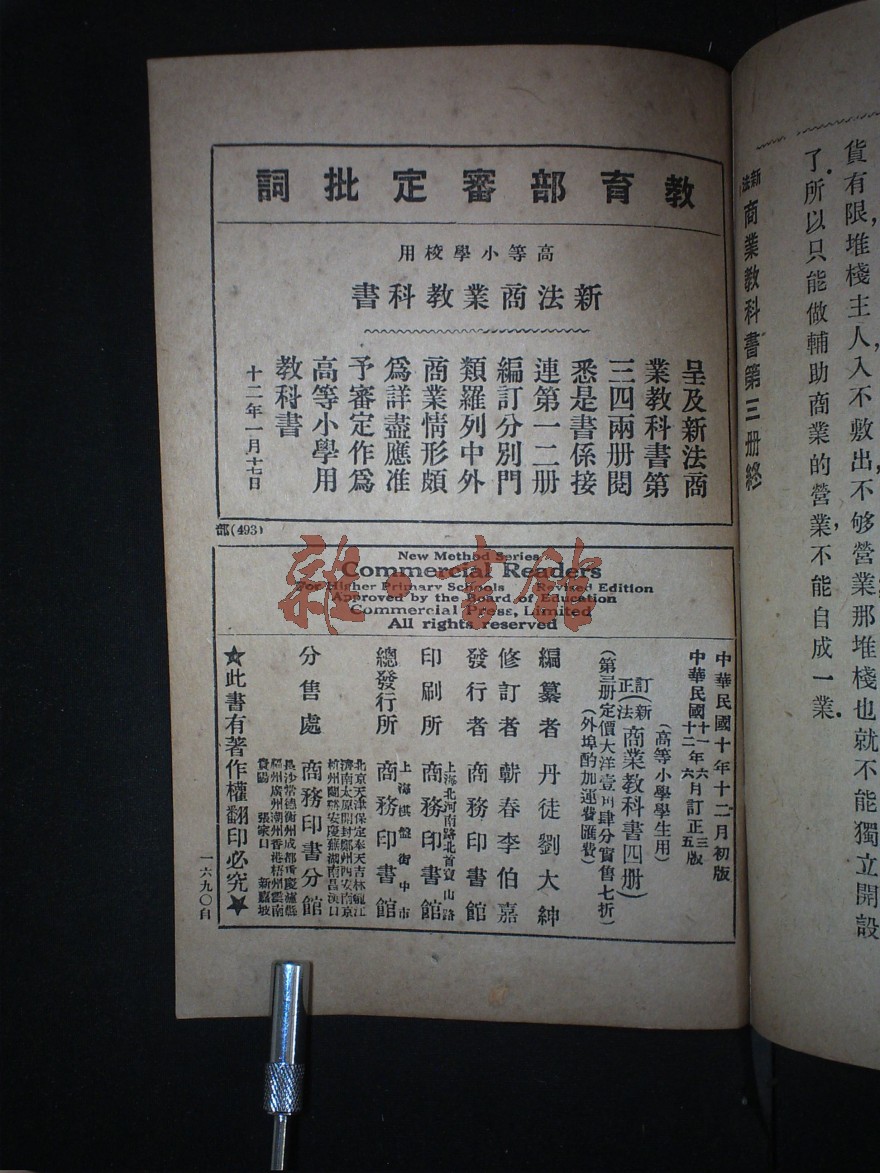 貨有限,堆棧主人,入不敷出,不够營業那堆棧也就不能獨立開設
了.所以只能做輔助商業的營業,不能自成一業.
新法商業教科書第三册終
教育部審定批詞
高等小學校用
新法商業教科書
呈及新法商
業教科書第
三四兩册閱
悉是書係接
連第一二册
編訂分別門
類羅列中外
商業情形頗
爲詳盡應准
予審定作爲
高等小學用
教科書
十二年一月十七日
部(493)
New Method Series
Commercial Readers
For Higher Primary Schools Revised Edition
Approved by the Board of Education
Commercial Press, Limited
All rights reserved
中華民國十年十二月初版
中華民國十一年六月訂正三版
十二年六月五版
(高等小學學生用)
訂正新法商業教科書四册
(第三册定價大洋壹角肆分實售七折)
(外埠酌加運費匯費)
編纂者 丹徒劉大紳
修訂者 蘄春李伯嘉
發行者 商務印書館
上海北河南路北首寶山路
印刷所 商務印書館
上海棋盤街中市
總發行所 商務印書館
北京天津保定奉天吉林龍江
濟南太原開封鄭州西安南京
杭州蘭谿安慶蕪湖南昌漢口
分售處 商務印書分館
長沙常德衡州成都重慶瀘縣
福州廣州潮州香港梧州雲南
貴陽 張家口 新嘉坡
★此書有著作權翻印必究★
一六九〇自
雜·书館